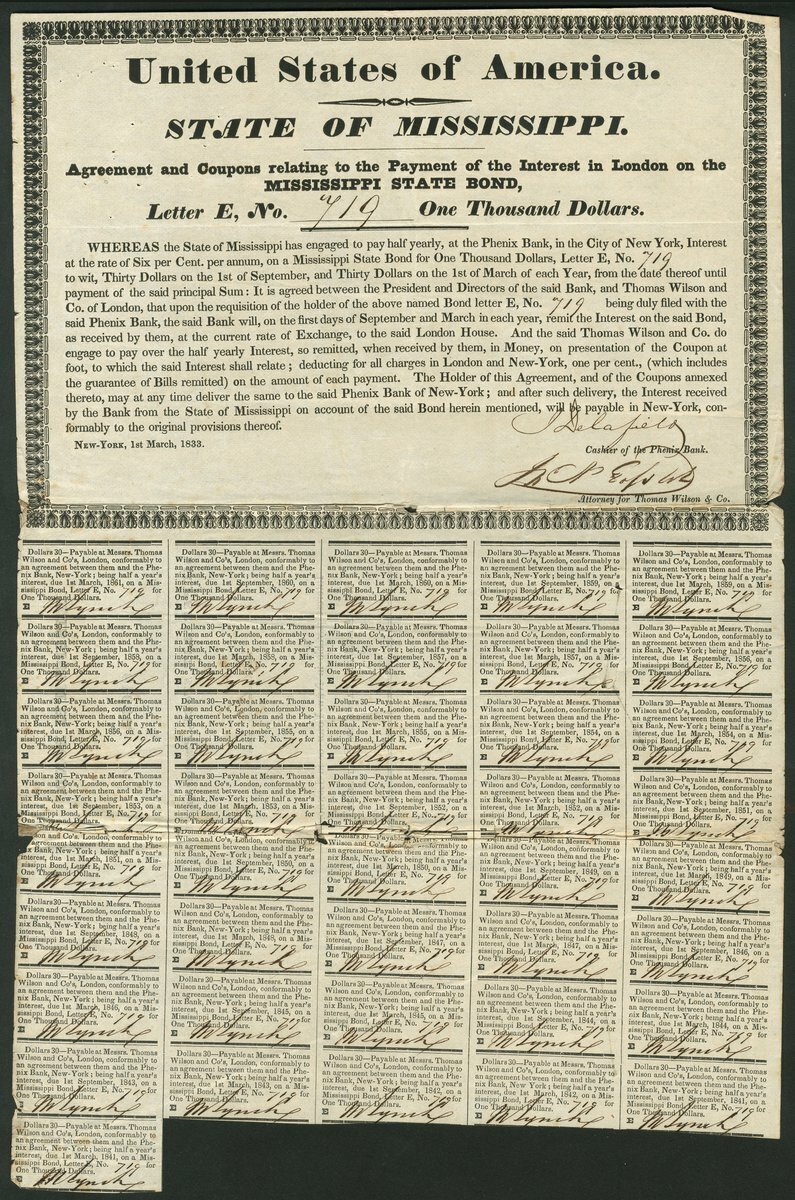 United States of America.
STATE OF MISSISSIPPI.
Agreement and Coupons relating to the Payment of the Interest in London on the
MISSISSIPPI STATE BOND,
Letter E, No. 719 One Thousand Dollars.
WHEREAS the State of Mississippi has engaged to pay half yearly, at the Phenix Bank, in the City of New York, Interest
at the rate of Six per Cent. per annum, on a Mississippi State Bond for One Thousand Dollars, Letter E, No. 719
to wit, Thirty Dollars on the 1st of September, and Thirty Dollars on the 1st of March of each Year, from the date thereof until
payment of the said principal Sum: It is agreed between the President and Directors of the said Bank, and Thomas Wilson and
Co. of London, that upon the requisition of the holder of the above named Bond letter E, No. 719 being duly filed with the
said Phenix Bank, the said Bank will, on the first days of September and March in each year, remit the Interest on the said Bond,
as received by them, at the current rate of Exchange, to the said London House. And the said Thomas Wilson and Co. do
engage to pay over the half yearly Interest, so remitted, when received by them, in Money, on presentation of the Coupon at
foot, to which the said Interest shall relate; deducting for all charges in London and New-York, one per cent., (which includes
the guarantee of Bills remitted) on the amount of each payment. The Holder of this Agreement, and of the Coupons annexed
thereto, may at any time deliver the same to the said Phenix Bank of New-York; and after such delivery, the Interest received
by the Bank from the State of Mississippi on account of the said Bond herein mentioned, will be payable in New-York, con-
formably to the original provisions thereof.
J Delafield
New-York, 1st March, 1833.
Cashier of the Phenix Bank.
Attorney for Thomas Wilson & Co.
Dollars 30—Payable at Messrs. Thomas
Wilson and Co's, London, conformably to
an agreement between them and the Phe-
nix Bank, New-York; being half a year's
interest, due 1st March, 1861, on a Mis-
sissippi Bond, Letter E, No. 719 for
One Thousand Dollars.
E M Lynch
Dollars 30—Payable at Messrs. Thomas
Wilson and Co's, London, conformably to
an agreement between them and the Phe-
nix Bank, New-York; being half a year's
interest, due 1st September, 1860, on a
Mississippi Bond, Letter E, No. 719 for
One Thousand Dollars.
E M Lynch
Dollars 30—Payable at Messrs. Thomas
Wilson and Co's, London, conformably to
an agreement between them and the Phe-
nix Bank, New-York; being half a year's
interest, due 1st March, 1860, on a Mis-
sissippi Bond, Letter E, No. 719 for
One Thousand Dollars.
E M Lynch
Dollars 30—Payable at Messrs. Thomas
Wilson and Co's, London, conformably to
an agreement between them and the Phe-
nix Bank, New-York; being half a year's
interest, due 1st September, 1859, on a
Mississippi Bond, Letter E, No. 719 for
One Thousand Dollars.
E M Lynch
Dollars 30—Payable at Messrs. Thomas
Wilson and Co's, London, conformably to
an agreement between them and the Phe-
nix Bank, New-York; being half a year's
interest, due 1st March, 1859, on a Mis-
sissippi Bond, Letter E, No. 719 for
One Thousand Dollars.
E M Lynch
Dollars 30—Payable at Messrs. Thomas
Wilson and Co's, London, conformably to
an agreement between them and the Phe-
nix Bank, New-York; being half a year's
interest, due 1st September, 1858, on a
Mississippi Bond, Letter E, No. 719 for
One Thousand Dollars.
E M Lynch
Dollars 30—Payable at Messrs. Thomas
Wilson and Co's, London, conformably to
an agreement between them and the Phe-
nix Bank, New-York; being half a year's
interest, due 1st March, 1858, on a Mis-
sissippi Bond, Letter E, No. 719 for
One Thousand Dollars.
E M Lynch
Dollars 30—Payable at Messrs. Thomas
Wilson and Co's, London, conformably to
an agreement between them and the Phe-
nix Bank, New-York; being half a year's
interest, due 1st September, 1857, on a
Mississippi Bond, Letter E, No. 719 for
One Thousand Dollars.
E M Lynch
Dollars 30—Payable at Messrs. Thomas
Wilson and Co's, London, conformably to
an agreement between them and the Phe-
nix Bank, New-York; being half a year's
interest, due 1st March, 1857, on a Mis-
sissippi Bond, Letter E, No. 719 for
One Thousand Dollars.
E M Lynch
Dollars 30—Payable at Messrs. Thomas
Wilson and Co's, London, conformably to
an agreement between them and the Phe-
nix Bank, New-York; being half a year's
interest, due 1st September, 1856, on a
Mississippi Bond, Letter E, No. 719 for
One Thousand Dollars.
E M Lynch
Dollars 30—Payable at Messrs. Thomas
Wilson and Co's, London, conformably to
an agreement between them and the Phe-
nix Bank, New-York; being half a year's
interest, due 1st March, 1856, on a Mis-
sissippi Bond, Letter E, No. 719 for
One Thousand Dollars.
E M Lynch
Dollars 30—Payable at Messrs. Thomas
Wilson and Co's, London, conformably to
an agreement between them and the Phe-
nix Bank, New-York; being half a year's
interest, due 1st September, 1855, on a
Mississippi Bond, Letter E, No. 719 for
One Thousand Dollars.
E M Lynch
Dollars 30—Payable at Messrs. Thomas
Wilson and Co's, London, conformably to
an agreement between them and the Phe-
nix Bank, New-York; being half a year's
interest, due 1st March, 1855, on a Mis-
sissippi Bond, Letter E, No. 719 for
One Thousand Dollars.
E M Lynch
Dollars 30—Payable at Messrs. Thomas
Wilson and Co's, London, conformably to
an agreement between them and the Phe-
nix Bank, New-York; being half a year's
interest, due 1st September, 1854, on a
Mississippi Bond, Letter E, No. 719 for
One Thousand Dollars.
E M Lynch
Dollars 30—Payable at Messrs. Thomas
Wilson and Co's, London, conformably to
an agreement between them and the Phe-
nix Bank, New-York; being half a year's
interest, due 1st March, 1854, on a Mis-
sissippi Bond, Letter E, No. 719 for
One Thousand Dollars.
E M Lynch
Dollars 30—Payable at Messrs. Thomas
Wilson and Co's, London, conformably to
an agreement between them and the Phe-
nix Bank, New-York; being half a year's
interest, due 1st September, 1853, on a
Mississippi Bond, Letter E, No. 719 for
Dollars 30—Payable at Messrs. Thomas
Wilson and Co's, London, conformably to
an agreement between them and the Phe-
nix Bank, New-York; being half a year's
interest, due 1st March, 1853, on a Mis-
sissippi Bond, Letter E, No. 719 for
One Thousand Dollars.
M Lynch
Dollars 30—Payable at Messrs. Thomas
Wilson and Co's, London, conformably to
an agreement between them and the Phe-
nix Bank, New-York; being half a year's
interest, due 1st September, 1852, on a
Mississippi Bond, Letter E, No. 719 for
One Thousand Dollars.
Dollars 30—Payable at Messrs. Thomas
Wilson and Co's, London, conformably to
an agreement between them and the Phe-
nix Bank, New-York; being half a year's
interest, due 1st March, 1852, on a Mis-
sissippi Bond, Letter E, No. 719 for
One Thousand Dollars.
E M Lynch
Dollars 30—Payable at Messrs. Thomas
Wilson and Co's, London, conformably to
an agreement between them and the Phe-
nix Bank, New-York; being half a year's
interest, due 1st September, 1851, on a
Mississippi Bond, Letter E, No. 719 for
One Thousand Dollars.
E M Lynch
Wilson and Co's, London, conformably to
an agreement between them and the Phe-
nix Bank, New-York; being half a year's
interest, due 1st March, 1851, on a Mis-
sissippi Bond, Letter E, No. 719 for
One Thousand Dollars.
E M Lynch
Wilson and Co's, London, conformably to
an agreement between them and the Phe-
nix Bank, New-York; being half a year's
interest, due 1st September, 1850, on a
Mississippi Bond, Letter E, No. 719 for
One Thousand Dollars.
E M Lynch
Dollars 30—Payable at Messrs. Thomas
Wilson and Co's, London, conformably to
an agreement between them and the Phe-
nix Bank, New-York; being half a year's
interest, due 1st March, 1850, on a Mis-
sissippi Bond, Letter E, No. 719 for
One Thousand Dollars.
E M Lynch
Dollars 30—Payable at Messrs. Thomas
Wilson and Co's, London, conformably to
an agreement between them and the Phe-
nix Bank, New-York; being half a year's
interest, due 1st September, 1849, on a
Mississippi Bond, Letter E, No. 719 for
One Thousand Dollars.
E M Lynch
Dollars 30—Payable at Messrs. Thomas
Wilson and Co's, London, conformably to
an agreement between them and the Phe-
nix Bank, New-York; being half a year's
interest, due 1st March, 1849, on a Mis-
sissippi Bond, Letter E, No. 719 for
One Thousand Dollars.
E M Lynch
Dollars 30—Payable at Messrs. Thomas
Wilson and Co's, London, conformably to
an agreement between them and the Phe-
nix Bank, New-York; being half a year's
interest, due 1st September, 1848, on a
Mississippi Bond, Letter E, No. 719 for
One Thousand Dollars.
E M Lynch
Dollars 30—Payable at Messrs. Thomas
Wilson and Co's, London, conformably to
an agreement between them and the Phe-
nix Bank, New-York; being half a year's
interest, due 1st March, 1848, on a Mis-
sissippi Bond, Letter E, No. 719 for
One Thousand Dollars.
E M Lynch
Dollars 30—Payable at Messrs. Thomas
Wilson and Co's, London, conformably to
an agreement between them and the Phe-
nix Bank, New-York; being half a year's
interest, due 1st September, 1847, on a
Mississippi Bond, Letter E, No. 719 for
One Thousand Dollars.
E M Lynch
Dollars 30—Payable at Messrs. Thomas
Wilson and Co's, London, conformably to
an agreement between them and the Phe-
nix Bank, New-York; being half a year's
interest, due 1st March, 1847, on a Mis-
sissippi Bond, Letter E, No. 719 for
One Thousand Dollars.
E M Lynch
Dollars 30—Payable at Messrs. Thomas
Wilson and Co's, London, conformably to
an agreement between them and the Phe-
nix Bank, New-York; being half a year's
interest, due 1st September, 1846, on a
Mississippi Bond, Letter E, No. 719 for
One Thousand Dollars.
E M Lynch
Dollars 30—Payable at Messrs. Thomas
Wilson and Co's, London, conformably to
an agreement between them and the Phe-
nix Bank, New-York; being half a year's
interest, due 1st March, 1846, on a Mis-
sissippi Bond, Letter E, No. 719 for
One Thousand Dollars.
E M Lynch
Dollars 30—Payable at Messrs. Thomas
Wilson and Co's, London, conformably to
an agreement between them and the Phe-
nix Bank, New-York; being half a year's
interest, due 1st September, 1845, on a
Mississippi Bond, Letter E, No. 719 for
One Thousand Dollars.
E M Lynch
Dollars 30—Payable at Messrs. Thomas
Wilson and Co's, London, conformably to
an agreement between them and the Phe-
nix Bank, New-York; being half a year's
interest, due 1st March, 1845, on a Mis-
sissippi Bond, Letter E, No. 719 for
One Thousand Dollars.
E M Lynch
Dollars 30—Payable at Messrs. Thomas
Wilson and Co's, London, conformably to
an agreement between them and the Phe-
nix Bank, New-York; being half a year's
interest, due 1st September, 1844, on a
Mississippi Bond, Letter E, No. 719 for
One Thousand Dollars.
E M Lynch
Dollars 30—Payable at Messrs. Thomas
Wilson and Co's, London, conformably to
an agreement between them and the Phe-
nix Bank, New-York; being half a year's
interest, due 1st March, 1844, on a Mis-
sissippi Bond, Letter E, No. 719 for
One Thousand Dollars.
E M Lynch
Dollars 30—Payable at Messrs. Thomas
Wilson and Co's, London, conformably to
an agreement between them and the Phe-
nix Bank, New-York; being half a year's
interest, due 1st September, 1843, on a
Mississippi Bond, Letter E, No. 719 for
One Thousand Dollars.
E M Lynch
Dollars 30—Payable at Messrs. Thomas
Wilson and Co's, London, conformably to
an agreement between them and the Phe-
nix Bank, New-York; being half a year's
interest, due 1st March, 1843, on a Mis-
sissippi Bond, Letter E, No. 719 for
One Thousand Dollars.
E M Lynch
Dollars 30—Payable at Messrs. Thomas
Wilson and Co's, London, conformably to
an agreement between them and the Phe-
nix Bank, New-York; being half a year's
interest, due 1st September, 1842, on a
Mississippi Bond, Letter E, No. 719 for
One Thousand Dollars.
E M Lynch
Dollars 30—Payable at Messrs. Thomas
Wilson and Co's, London, conformably to
an agreement between them and the Phe-
nix Bank, New-York; being half a year's
interest, due 1st March, 1842, on a Mis-
sissippi Bond, Letter E, No. 719 for
One Thousand Dollars.
E M Lynch
Dollars 30—Payable at Messrs. Thomas
Wilson and Co's, London, conformably to
an agreement between them and the Phe-
nix Bank, New-York; being half a year's
interest, due 1st September, 1841, on a
Mississippi Bond, Letter E, No. 719 for
One Thousand Dollars.
E M Lynch
Dollars 30—Payable at Messrs. Thomas
Wilson and Co's, London, conformably to
an agreement between them and the Phe-
nix Bank, New-York; being half a year's
interest, due 1st March, 1841, on a Mis-
sissippi Bond, Letter E, No. 719 for
One Thousand Dollars.
E M Lynch